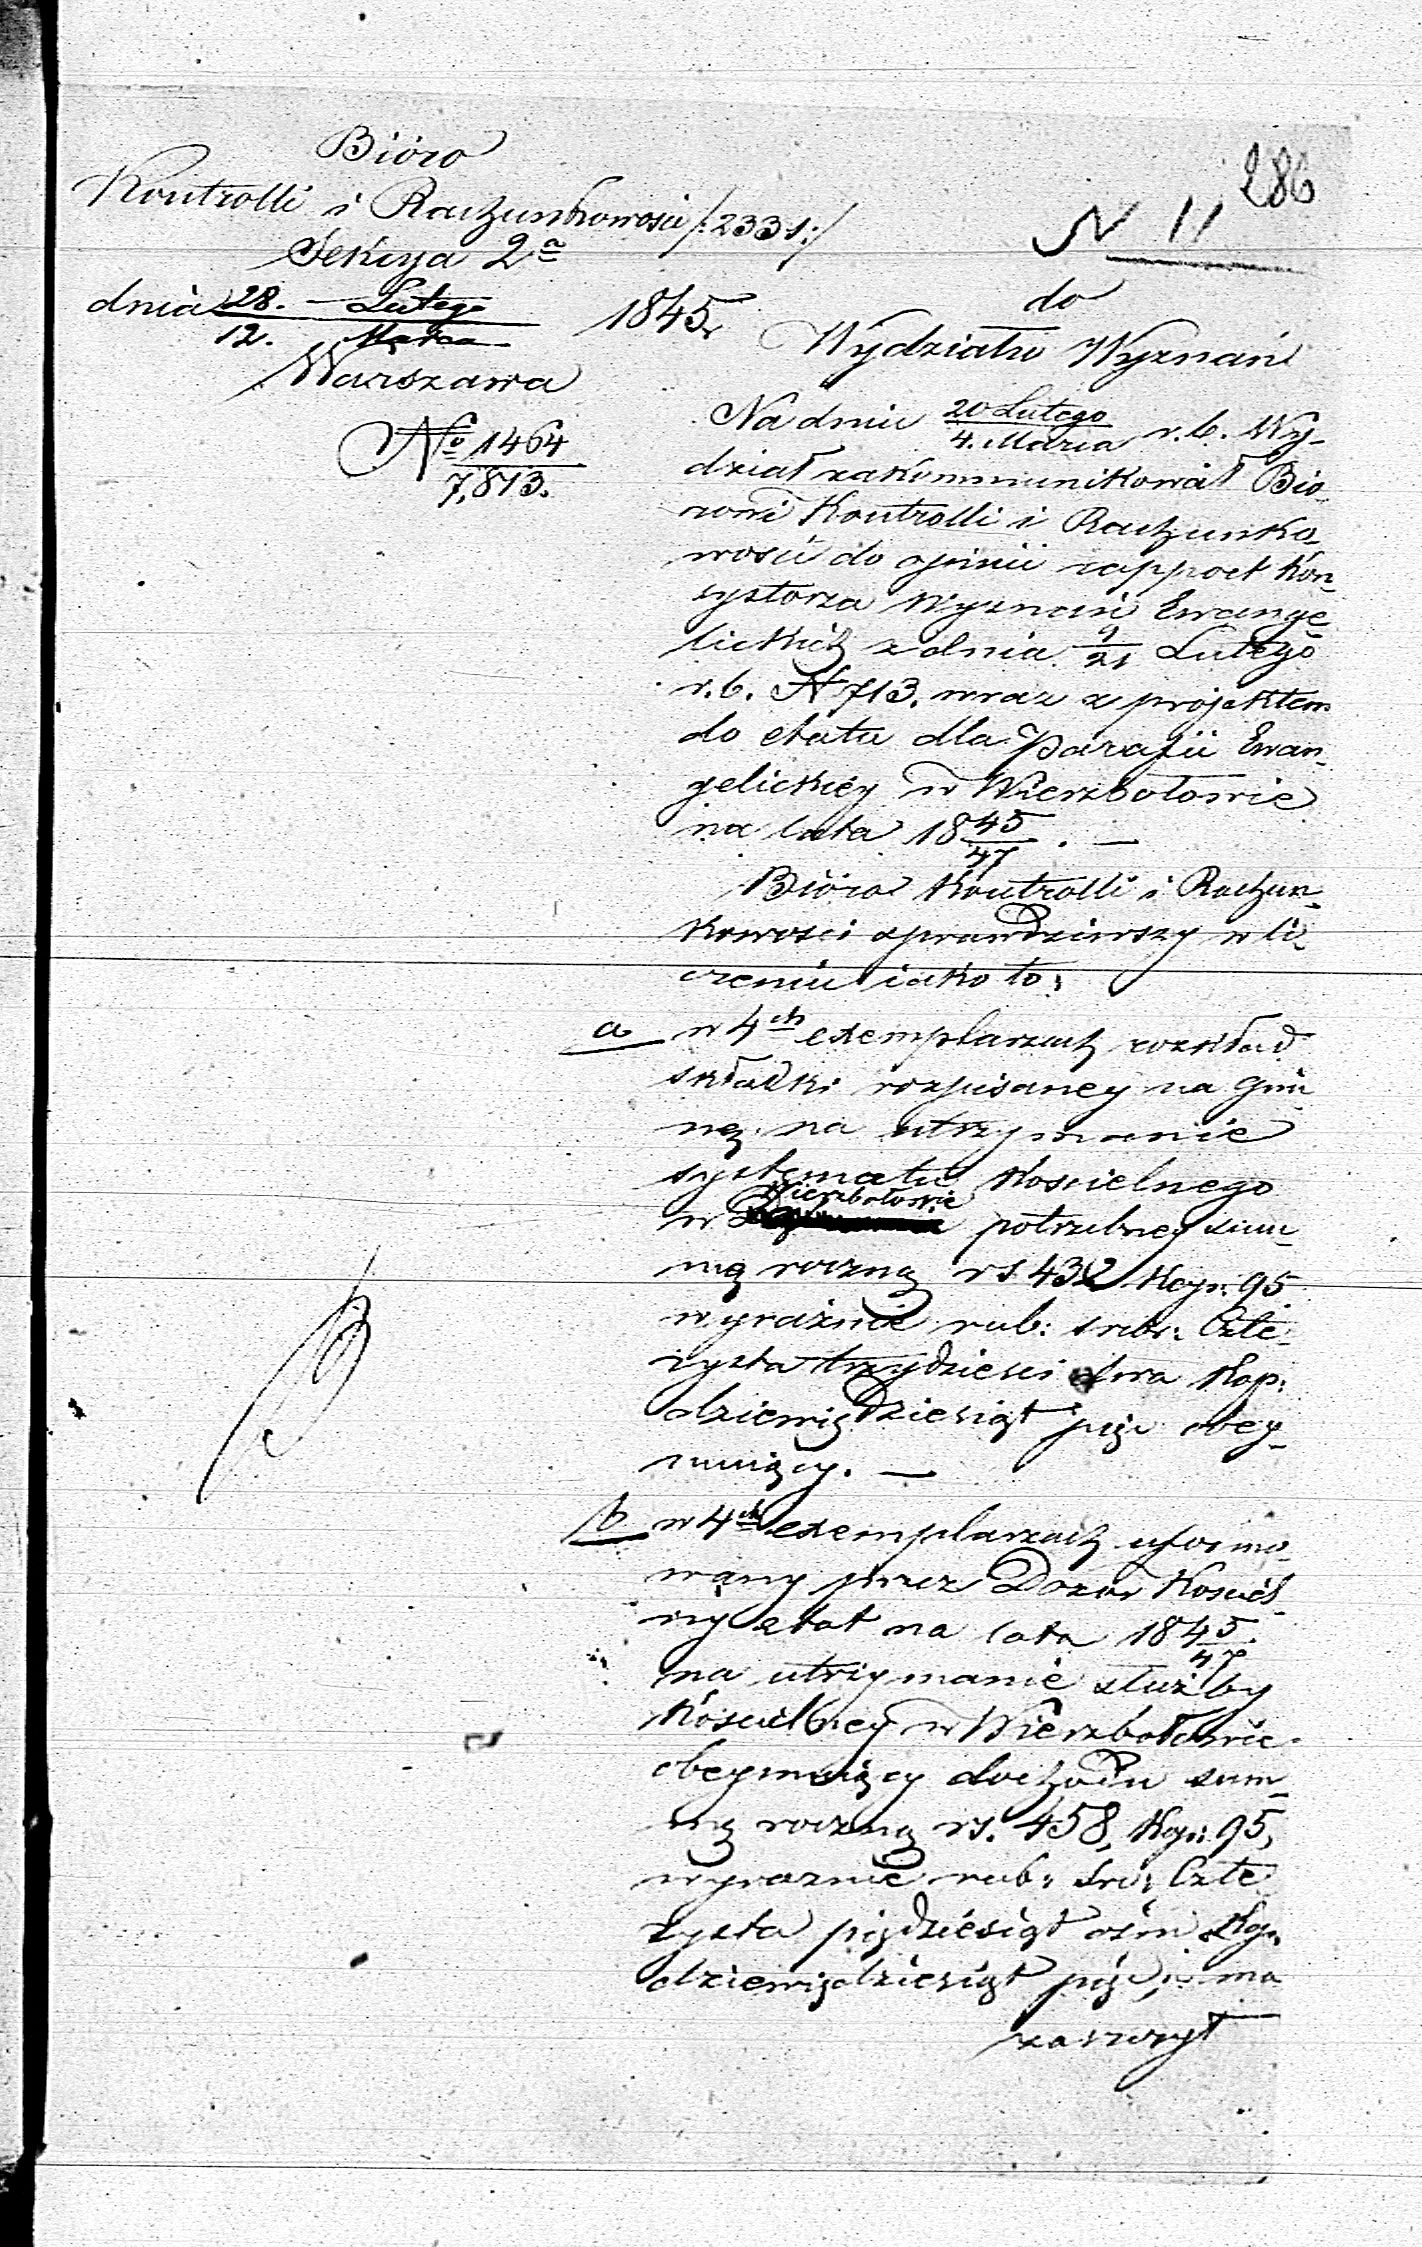 286
N 11
Bióro
Kontrolli i Rachunkowości /:2331:/
Sekcya 2ª
dnia 28. Lutego / 12. Marca 1845r
Warszawa
No 1464 / 7,813.
do
Wydziału Wyznań
Na dniu 20 Lutego / 4. Marca r. b. Wy-
dział zakommunikował Bió-
rowi Kontrolli i Rachunko-
wości do opinii rapport Kon-
systorza Wyznań Ewange-
lickich z dnia 9/21 Lutego
r. b. N 713. wraz z projektem
do etatu dla Parafii Ewan-
gelickiéy w Wierzbołowie
na lata 1845/47. —
Bióro Kontrolli i Rachun-
kowości sprawdziwszy w li-
czeniu iako to:
a w 4ch exemplarzach rozkład
składki rozpisaney na gmi-
nę na utrzymanie
systematu Kościelnego
w Wierzbołowie potrzebney sum-
mę roczną rs 432 Kop: 95
wyraźnie rub: srbr: Czte-
rysta trzydzieści dwa Kop:
dziewięćdziesiąt pięć obey-
muiący. —
b w 4ch exemplarzach uformo-
wany przez Dozór Kościel-
ny etat na lata 1845/47
na utrzymanie służby
Kościelney w Wierzbołowie
obeymuiący dochodu sum-
mę roczną rs. 458, Kop: 95,
wyraźnie rub: sr: Czte
rysta pięćdziesiąt ośm Kop:
dziewięćdziesiąt pięć, ma
zaszczyt